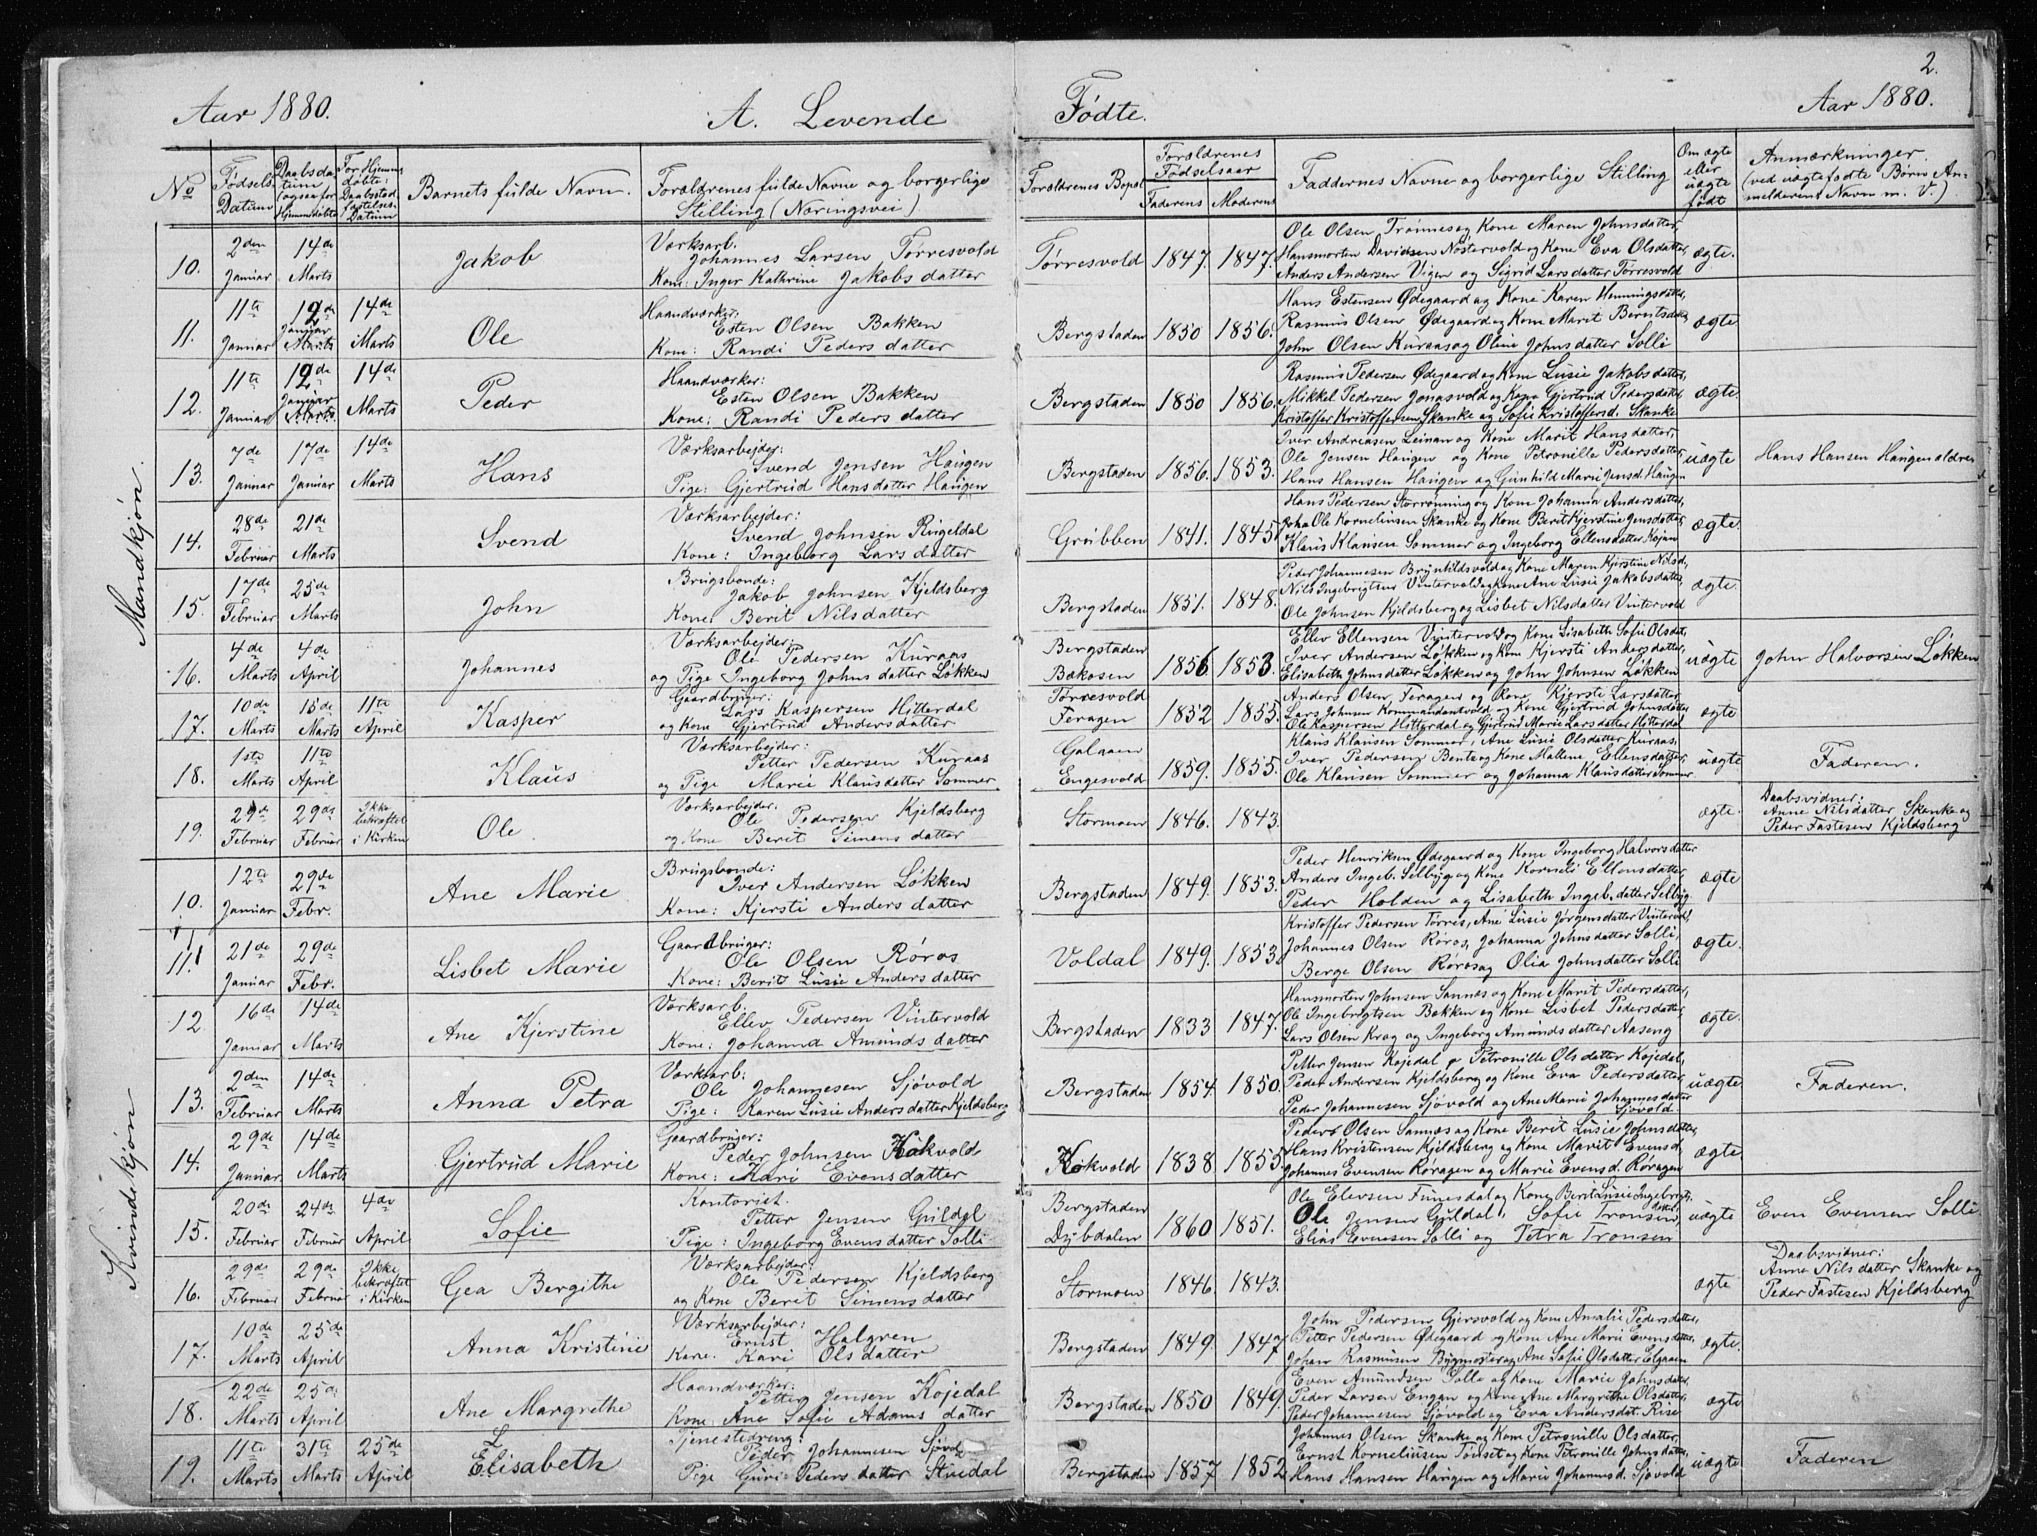 2.
Aar 1880. A. Levende Fødte. Aar 1880.
No
Fødsels-Datum
Daabsdatum (ogsaa for Hjemmedøbte
For Hjemmedøbte: Daabstadfæstelses-Datum
Barnets fulde Navn.
Forældrenes fulde Navne og borgerlige Stilling (Næringsvei)
Forældrenes Bopæl
Forældrenes Fødselsaar
Faderens Moderens
Faddernes Navne og borgerlige Stilling
Om ægte eller uægte født
Anmærkninger. (ved uægte fødte Børn Anmelderens Navn m. V.)
Mandkjøn.
10. 2den Januar 14de Marts Jakob
Værksarb. Johannes Larsen Tørresvold
Kone: Inger Kathrine Jakobsdatter
Tørresvold 1847. 1847.
Ole Olsen Trønnes og Kone Maren Johnsdatter,
Hansmorten Davidsen Nøstervold og Kone Eva Olsdatter,
Anders Andersen Vigen og Sigrid Larsdatter Tørresvold
ægte.
11. 11te Januar 12de Januar 14de Marts Ole
Haandværker: Esten Olsen Bakken
Kone: Randi Pedersdatter
Bergstaden 1850 1856.
Hans Estensen Ødegaard og Kone Karen Henningsdatter,
Rasmus Olsen Ødegaard og Kone Marit Berentsdatter,
John Olsen Kuraas og Oline Johnsdatter Solli
ægte
12. 11te Januar 12de Januar 14de Marts Peder
Haandværker: Esten Olsen Bakken
Kone: Randi Pedersdatter
Bergstaden 1850 1856.
Rasmus Pedersen Ødegaard og Kone Lusie Jakobsdatter,
Mikkel Pedersen Jonasvold og Kone Gjertrud Pedersdatter,
Kristoffer Kristoffersen Skanke og Sofie Kristoffersd. Skanke
ægte.
13. 7de Januar 17de Januar 14de Marts Hans
Værksarbejder: Svend Jensen Haugen
Pige: Gjertrud Hansdatter Haugen
Bergstaden 1856. 1853.
Iver Andreasen Leinan og Kone Marit Hansdatter,
Ole Jensen Haugen og Kone Petronille Pedersdatter,
Hans Hansen Haugen og Gunhild Marie Jensd. Haugen
uægte Hans Hansen Haugen
14. 28de Februar 21de Marts Svend
Værksarbejder: Svend Johnsen Ringeldal
Kone: Ingeborg Larsdatter
Grubben 1841. 1845
Hans Pedersen Storrønning og Kone Johanna Andersdatter,
Ole Korneliusen Skanke og Kone Berit Kjerstine Jensdatter,
Klaus Klausen Sommer og Ingeborg Ellensdatter Kojan
ægte.
15. 17de Februar 25de Marts John
Brugsbonde: Jakob Johnsen Kjeldsberg
Kone: Berit Nilsdatter
Bergstaden 1851. 1848.
Peder Johannesen Brynhildsvold og Kone Maren Kjerstine Nilsd.
Nils Ingebrigtsen Vintervold og Kone Ane Lusie Jakobsdatter,
Ole Johnsen Kjeldsberg og Lisbet Nilsdatter Vintervold
ægte.
16. 4de Marts 4de April Johannes
Værksarbejder: Ole Pedersen Kuraas
og Pige Ingeborg Johnsdatter Løkken
Bergstaden
Bakosen 1856 1853.
Ellev Ellensen Vintervold og Kone Lisabeth Sofie Olsdat,
Iver Andersen Løkken og Kone Kjersti Andersdatter,
Elisabeth Johnsdatter Løkken og John Johnsen Løkken
uægte John Halvorsen Løkken
17. 10de Marts 15de Marts 11te April Kasper
Gaardbruger: Lars Kaspersen Hitterdal
og Kone Gjertrud Andersdatter
Tørresvold
Feragen 1852 1855.
Anders Olsen Feragen og Kone Kjersti Larsdatter,
Lars Johnsen Kommandantvold og Kone Gjertrud Johnsdatter,
Ole Kaspersen Hitterdal og Gjertrud Marie Larsdatter Hitterdal
ægte
18. 1ste Marts 11te April Klaus
Værksarbejder: Petter Pedersen Kuraas
og Pige Marie Klausdatter Sommer
Galaaen
Engesvold 1859. 1855.
Klaus Klausen Sommer, Ane Lusie Olsdatter Kuraas,
Iver Pedersen Bents og Kone Mattine Ellensdatter,
Ole Klausen Sommer og Johanna Klausdatter Sommer
uægte Faderen.
19. 29de Februar 29de Februar Ikke bekræftet i Kirken Ole
Værksarbejder. Ole Pedersen Kjeldsberg
og Kone Berit Simensdatter
Stormoen 1846. 1843.
ægte. Daabsvidner: Anne Nilsdatter Skanke og Peder Fastesen Kjeldsberg
Kvindekjøn
10. 12te Januar 29de Febr. Ane Marie
Brugsbonde: Iver Andersen Løkken
Kone: Kjersti Andersdatter
Bergstaden 1849. 1853.
Peder Henriksen Ødegaard og Kone Ingeborg Halvorsdatter
Anders Ingeb. Selbyg og Kone Korneli Ellensdatter,
Peder Holden og Lisabeth Ingeb.datter Selbyg
ægte
11. 21de Januar 29de Febr. Lisbet Marie
Gaardbruger: Ole Olsen Røros
Kone: Berit Lusie Andersdatter
Voldal 1849. 1853
Kristoffer Pedersen Torres, Ane Lusie Jørgensdatter Vintervold,
Johannes Olsen Røros, Johanna Johnsdatter Solli,
Berge Olsen Røros og Olia Johnsdatter Solli
ægte.
12 16de Januar 14de Marts Ane Kjerstine
Værksarb. Ellev Pedersen Vintervold
Kone: Johanna Amundsdatter
Bergstaden 1833 1847.
Hansmorten Johnsen Sannæs og Kone Marit Pedersdatter,
Ole Ingebrigtsen Bakken og Kone Lisbet Pedersdatter,
Lars Olsen Krag og Ingeborg Amundsdatter Aaseng
ægte.
13. 2den Februar 14de Marts Anna Petra
Værksarb: Ole Johannesen Sjøvold
Pige: Karen Lusie Andersdatter Kjeldsberg
Bergstaden 1854. 1850.
Petter Jensen Kojedal og Petronille Olsdatter Kojedal,
Peder Andersen Kjeldsberg og Kone Eva Pedersdatter,
Peder Johannesen Sjøvold og Ane Marie Johannesdatter Sjøvold
uægte Faderen.
14. 29de Januar 14de Marts Gjertrud Marie
Gaardbruger: Peder Johnsen Kokvold
Kone: Kari Evensdatter
Kokvold 1838 1855
Peder Olsen Sannæs og Kone Berit Lusie Johnsdatter,
Hans Kristensen Kjeldsberg og Kone Marit Evensd.
Johannes Evensen Røragen og Marie Evensd. Røragen
ægte
15. 20de Februar 24de Februar 4de April Sofie
Kontorist. Petter Jensen Guldal
Pige: Ingeborg Evensdatter Solli
Bergstaden
Dybdalen 1860 1851.
Ole Elevsen Funesdal og Kone Berit Lusie Ingebrigts-
Ole Jensen Guldal, Sofie Tronsen,
Elias Evensen Solli og Petra Tronsen
uægte Even Evensen Solli
16. 29de Februar 29de Februar Ikke bekræftet i Kirken Gea Bergithe
Værksarbejder: Ole Pedersen Kjeldsberg
og Kone Berit Simensdatter
Stormoen 1846. 1843.
ægte Daabsvidner: Anne Nilsdatter Skanke og Peder Fastesen Kjeldsberg
17. 10de Marts 25de April Anna Kristine
Værksarbejder: Ernst Halgren
Kone. Kari Olsdatter
Bergstaden 1849. 1847
John Pedersen Gjersvold og Kone Amalie Pedersdatter,
Petter Pedersen Ødegaard og Kone Ane Marie Evensdatter,
Johan Rasmusen Bygmester og Ane Sofie Olsdatter Elgaaen
ægte.
18. 22de Marts 25de April Ane Margrethe
Haandværker: Petter Jensen Kojedal
Kone: Ane Sofie Adamsdatter
Bergstaden 1850 1849.
Even Amundsen Solli og Kone Marie Johnsdatter,
Peder Larsen Engan og Kone Ane Margrethe Olsdatter,
Peder Johannesen Sjøvold og Eva Andersdat. Rise
ægte
19. 11te Marts 31te Marts 25de April Elisabeth
Tjenestedreng: Peder Johannesen Sjøvold
Pige Guri Pedersdatter Stuedal
Bergstaden 1857 1852
Johannes Olsen Skanke og Kone Petronille Olsdatter,
Ernst Korneliusen Tønset og Kone Petronille Johnsdatter,
Hans Hansen Haugen og Marie Johannesd. Sjøvold
uægte Faderen